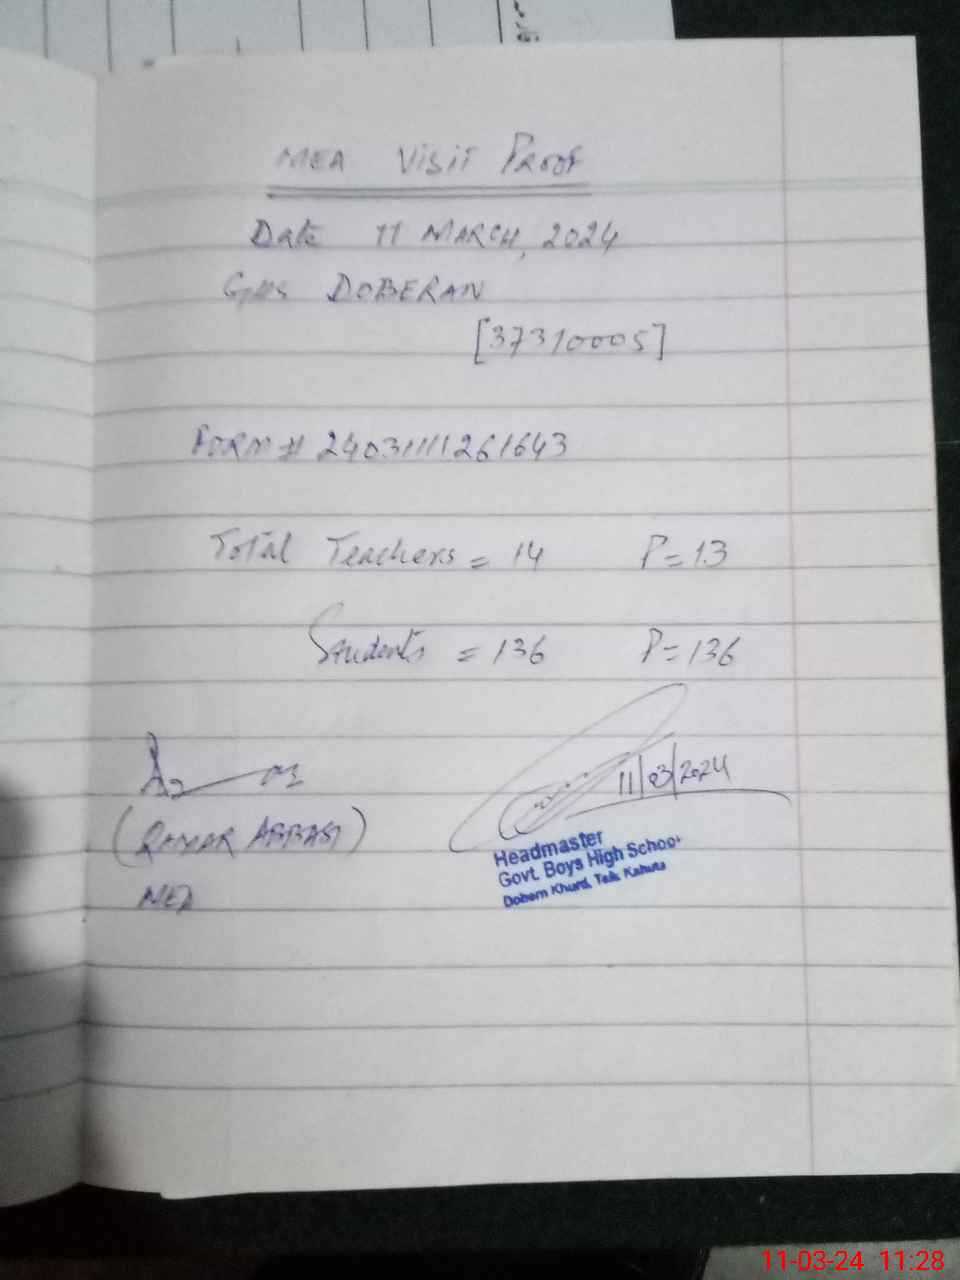 MEA Visit Proof
Date 11 March, 2024
GHS DOBERAN
[37310005]
FORM # 24031111261643
Total Teachers = 14 P=13
Students = 136 P=136
11/03/2024
(QAMAR ABBASI)
MEA
Headmaster
Govt. Boys High School
Dobern Khurd, Teh. Kahuta
11-03-24 11:28